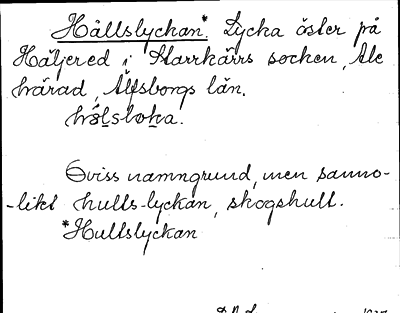 Hållslyckan* Lycka öster på
Häljered i Starrkärrs socken, Ale
härad, Älfsborgs län.
Oviss namngrund, men sanno-
-likt hulls-lyckan, skogshull.
*Hullslyckan